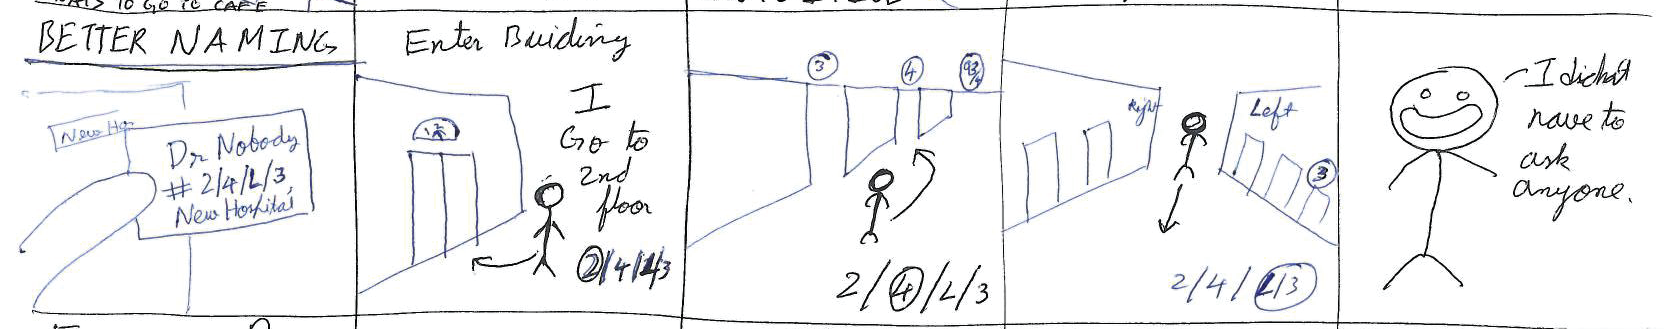 TO GO TO CAFE
BETTER NAMING
New Ho
Dr Nobody
# 2/4/L/3
New Hospital
Enter Building
I
Go to
2nd
floor
2/4/L/3
3
4
2/4/L/3
Right
Left
3
2/4/L/3
I didnt
have to
ask
anyone.